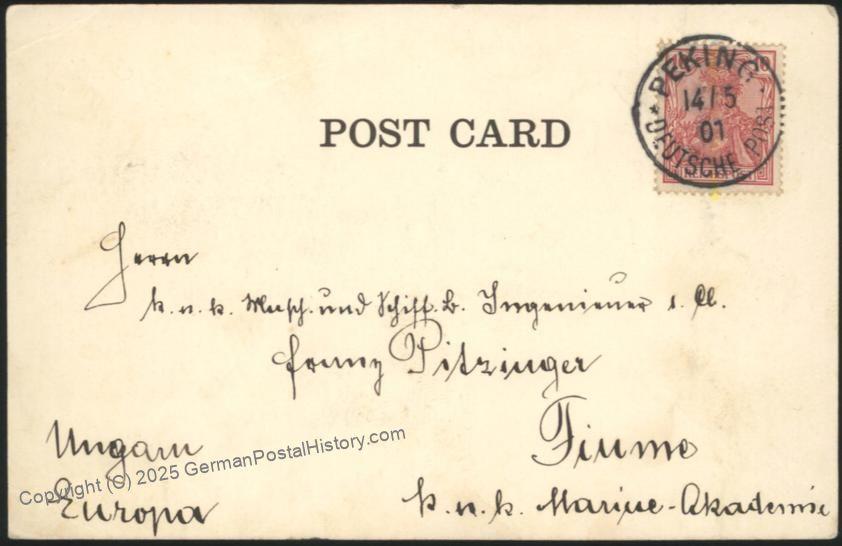 PEKING
14/5
01
* DEUTSCHE POST
10
REICHSPOST
POST CARD
Herrn
k. u. k. Masch. und Schiff. B. Ingenieuer 1. Cl.
Franz Pitzinger
Ungarn
Fiume
Copyright (C) 2025 GermanPostalHistory.com
Europa
k. u. k. Marine-Akademie